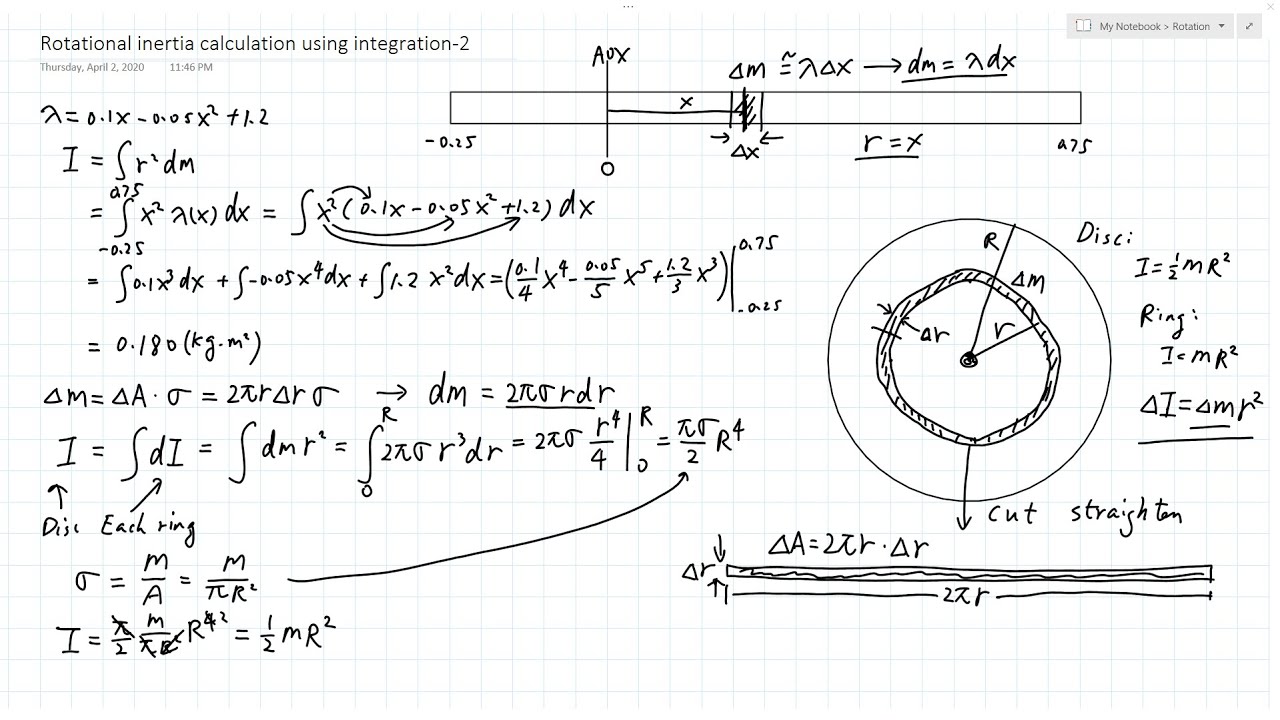 My Notebook > Rotation
Rotational inertia calculation using integration-2
Thursday, April 2, 2020 11:46 PM
AOX
Δm ≅ λΔx → dm = λdx
x
-0.25
0
Δx
r = x
0.75
λ = 0.1x - 0.05x² + 1.2
I = ∫r²dm
= ∫_{-0.25}^{0.75} x² λ(x) dx = ∫x²(0.1x - 0.05x² + 1.2) dx
= ∫0.1x³dx + ∫-0.05x⁴dx + ∫1.2 x²dx = (0.1/4 x⁴ - 0.05/5 x⁵ + 1.2/3 x³)|_{-0.25}^{0.75}
= 0.180 (kg·m²)
Δm = ΔA · σ = 2πrΔrσ → dm = 2πσrdr
I = ∫dI = ∫dm r² = ∫_0^R 2πσ r³dr = 2πσ r⁴/4 |_0^R = πσ/2 R⁴
Disc Each ring
σ = m/A = m/πR²
I = π/2 m/πR² R⁴² = 1/2 mR²
R
Δm
Δr
r
Disc:
I = 1/2 mR²
Ring:
I = mR²
ΔI = Δmr²
cut straighten
ΔA = 2πr · Δr
Δr
2πr